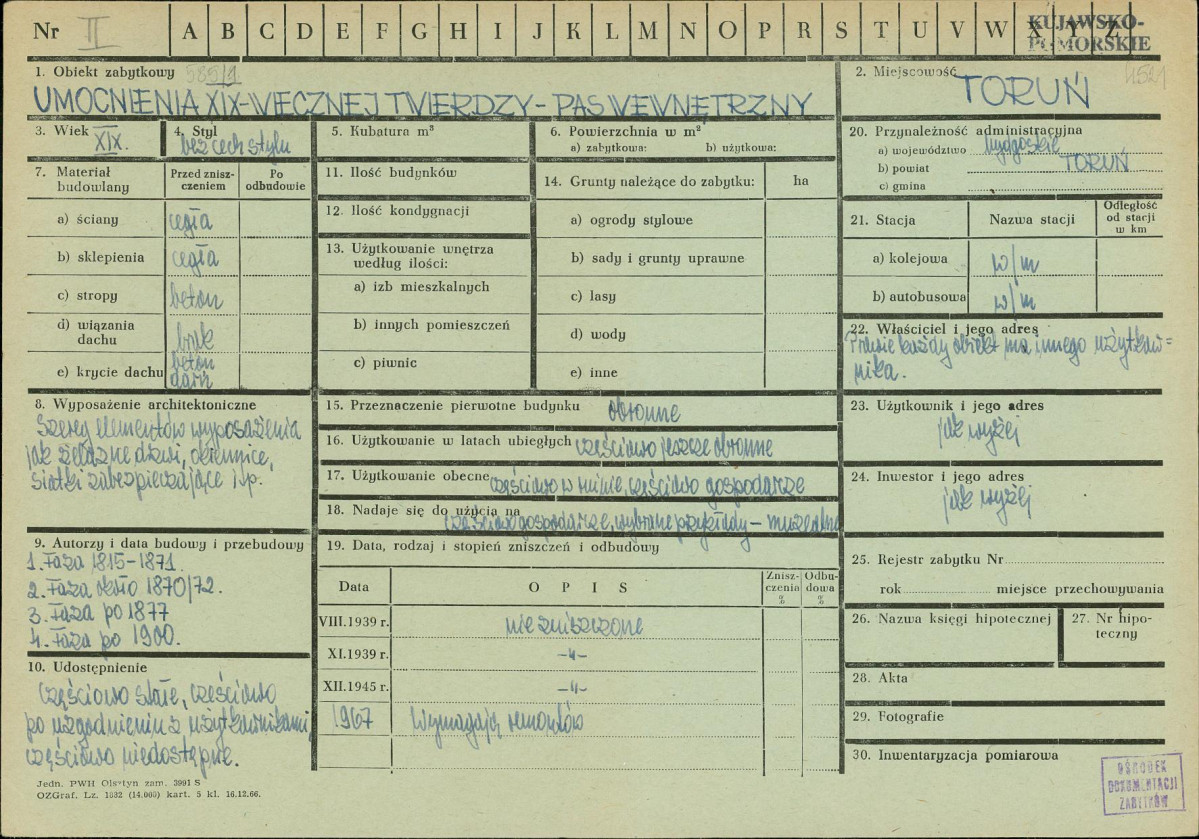 Nr II A B C D E F G H I J K L M N O P R S T U V W X Y Z
KUJAWSKO-
POMORSKIE
1. Obiekt zabytkowy 585/1
UMOCNIENIA XIX-WIECZNEJ TWIERDZY - PAS WEWNĘTRZNY
2. Miejscowość 4521
TORUŃ
3. Wiek
XIX.
4. Styl
bez cech stylu
5. Kubatura m³
6. Powierzchnia w m²
a) zabytkowa: b) użytkowa:
7. Materiał
budowlany
Przed znisz-
czeniem
Po
odbudowie
a) ściany cegła
b) sklepienia cegła
c) stropy beton
d) wiązania
dachu brak
e) krycie dachu beton
darń
8. Wyposażenie architektoniczne
Szereg elementów wyposażenia
jak żelazne drzwi, okiennice,
siatki zabezpieczające itp.
9. Autorzy i data budowy i przebudowy
1. Faza 1815-1871.
2. Faza około 1870/72.
3. Faza po 1877
4. Faza po 1900.
10. Udostępnienie
Częściowo stałe, częściowo
po uzgodnieniu z użytkownikami,
częściowo niedostępne.
11. Ilość budynków
12. Ilość kondygnacji
13. Użytkowanie wnętrza
według ilości:
a) izb mieszkalnych
b) innych pomieszczeń
c) piwnic
14. Grunty należące do zabytku: ha
a) ogrody stylowe
b) sady i grunty uprawne
c) lasy
d) wody
e) inne
15. Przeznaczenie pierwotne budynku obronne
16. Użytkowanie w latach ubiegłych częściowo jeszcze obronne
17. Użytkowanie obecne częściowo w ruinie, częściowo gospodarze
18. Nadaje się do użycia na
częściowo gospodarze, wybrane przykłady - muzealne
19. Data, rodzaj i stopień zniszczeń i odbudowy
Data O P I S Znisz-
czenia
% Odbu-
dowa
%
VIII.1939 r. nie zniszczone
XI.1939 r. -„-
XII.1945 r. -„-
1967 Wymagają remontów
20. Przynależność administracyjna
a) województwo bydgoskie
b) powiat TORUŃ
c) gmina
21. Stacja Nazwa stacji Odległość
od stacji
w km
a) kolejowa w/m
b) autobusowa w/m
22. Właściciel i jego adres
Prawie każdy obiekt ma innego użytkow=
nika.
23. Użytkownik i jego adres
jak wyżej
24. Inwestor i jego adres
jak wyżej
25. Rejestr zabytku Nr
rok miejsce przechowywania
26. Nazwa księgi hipotecznej
27. Nr hipo-
teczny
28. Akta
29. Fotografie
30. Inwentaryzacja pomiarowa
OŚRODEK
DOKUMENTACJI
ZABYTKÓW
Jedn. PWH Olsztyn zam. 3991 S
OZGraf. Lz. 1832 (14.000) kart. 5 kl. 16.12.66.